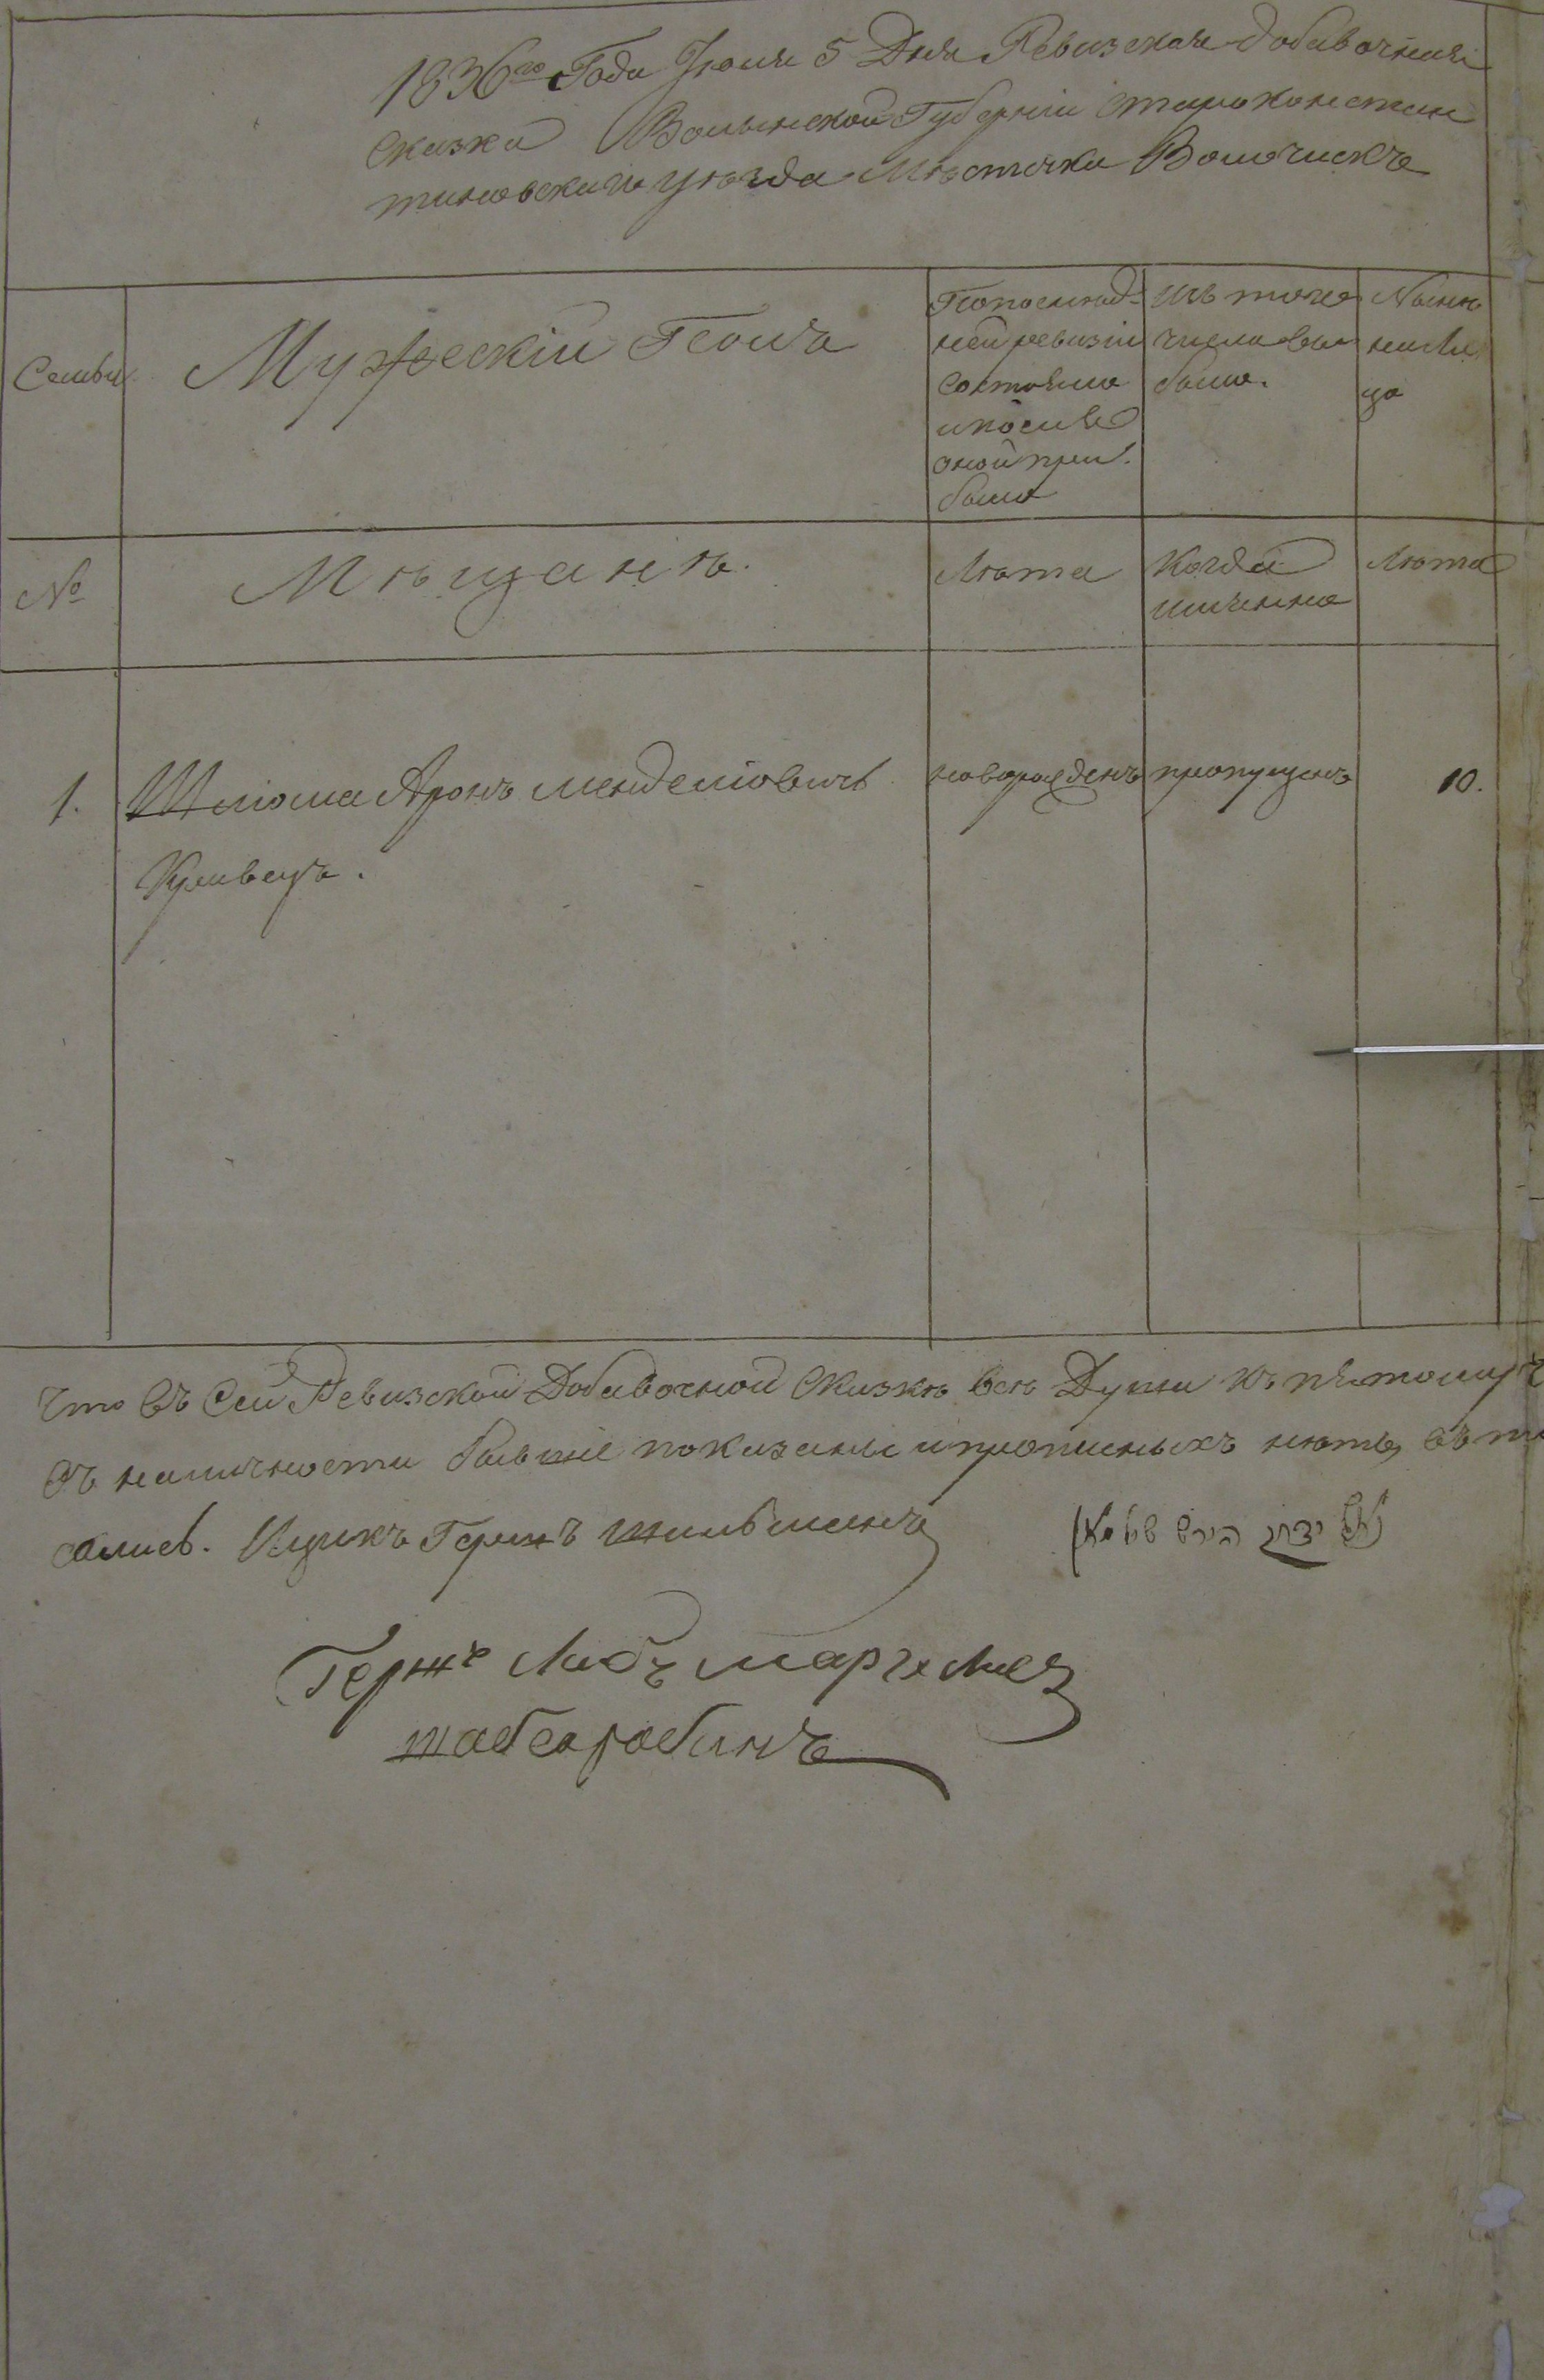 1836го Года Іюня 5 Дня Ревизская добавочная
Сказка Волынской Губерніи Староконстан
тиновскаго уѣзда Мѣстечка Волочискъ
Семьи
Мужескій Полъ
По послѣд-
ней ревизіи
состояло
и послѣ
оной при
было
Изъ того
числа вы
было.
Нынѣ
на ли
цо
№
Мѣщанѣ.
Лѣта
Когда
именно
Лѣта
1.
Шліома Аронъ Менделіовичъ
Кривецъ.
новорожденъ
пропущенъ
10.
Что въ сей Ревизской Добавочной Сказкѣ всѣ Души къ пятому ч
въ наличности бывшіе показаны и прописныхъ нѣтъ, въ т
Ицикъ Гершъ
הירש
Гершъ Лейбъ маргелис